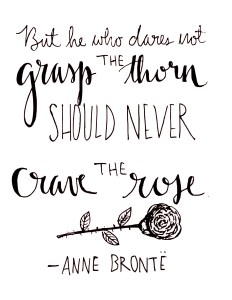 But he who dares not
grasp THE thorn
SHOULD NEVER
Crave THE rose.
-ANNE BRONTË